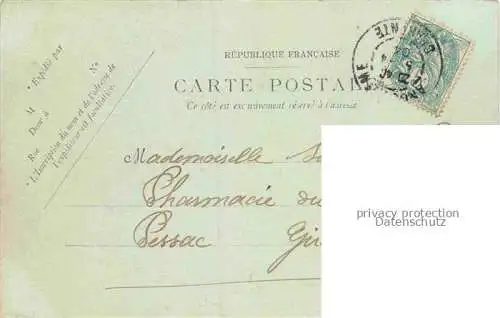 RÉPUBLIQUE FRANÇAISE
CARTE POSTAL
Ce côté est exclusivement réservé à l'adresse
* Expédié par
M
N°
Demt à
Rue
* L'Inscription du nom et de l'adresse de
l'expéditeur est facultative.
Mademoiselle
Pharmacie du
Pessac Gir
privacy protection
Datenschutz